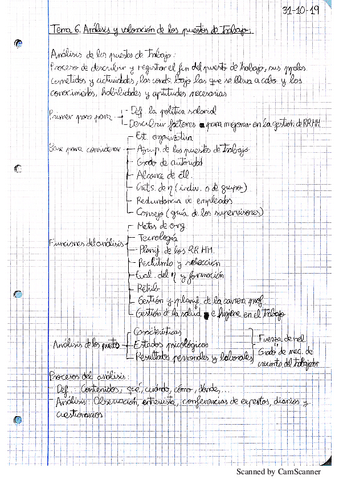 31-10-19
Tema 6. Análisis y valoración de los puestos de Trabajo.
Análisis de los puestos de Trabajo:
Proceso de describir y registrar el fin del puesto de trabajo, sus pples
cometidos y actividades, las conds. bajo las que se lleva a cabo y los
conocimtos. habilidades y aptitudes necesarias
Primer paso para - Def. la política salarial
- Descubrir factores para mejorar en la gestión de RRHH
- Est. organizativa
Sirve para considerar - Agrup. de los puestos de trabajo
- Grado de autoridad
- Alcance de
- de η (indiv. o de grupo)
- Redundancia de empleados
- Consejo (guía de los supervisores)
- Metas de org.
Funciones del análisis - Tecnología
- Planif. de los RRHH
- Reclutmto y selección
- Eval. del η y formación
- Retrib.
- Gestión y planif. de la carrera prof.
- Gestión de la salud e higiene en el trabajo
- Características
Análisis de los ptos - Estados psicológicos
- Resultados personales y laborales
Fuerza de nec.
Grado de nec. de
del trabajador
Procesos del análisis:
- Def.: Contenidos, que, cuándo, cómo, dónde,...
- Análisis: Observación, entrevista, conferencias de expertos, diarios y
cuestionarios
Scanned by CamScanner